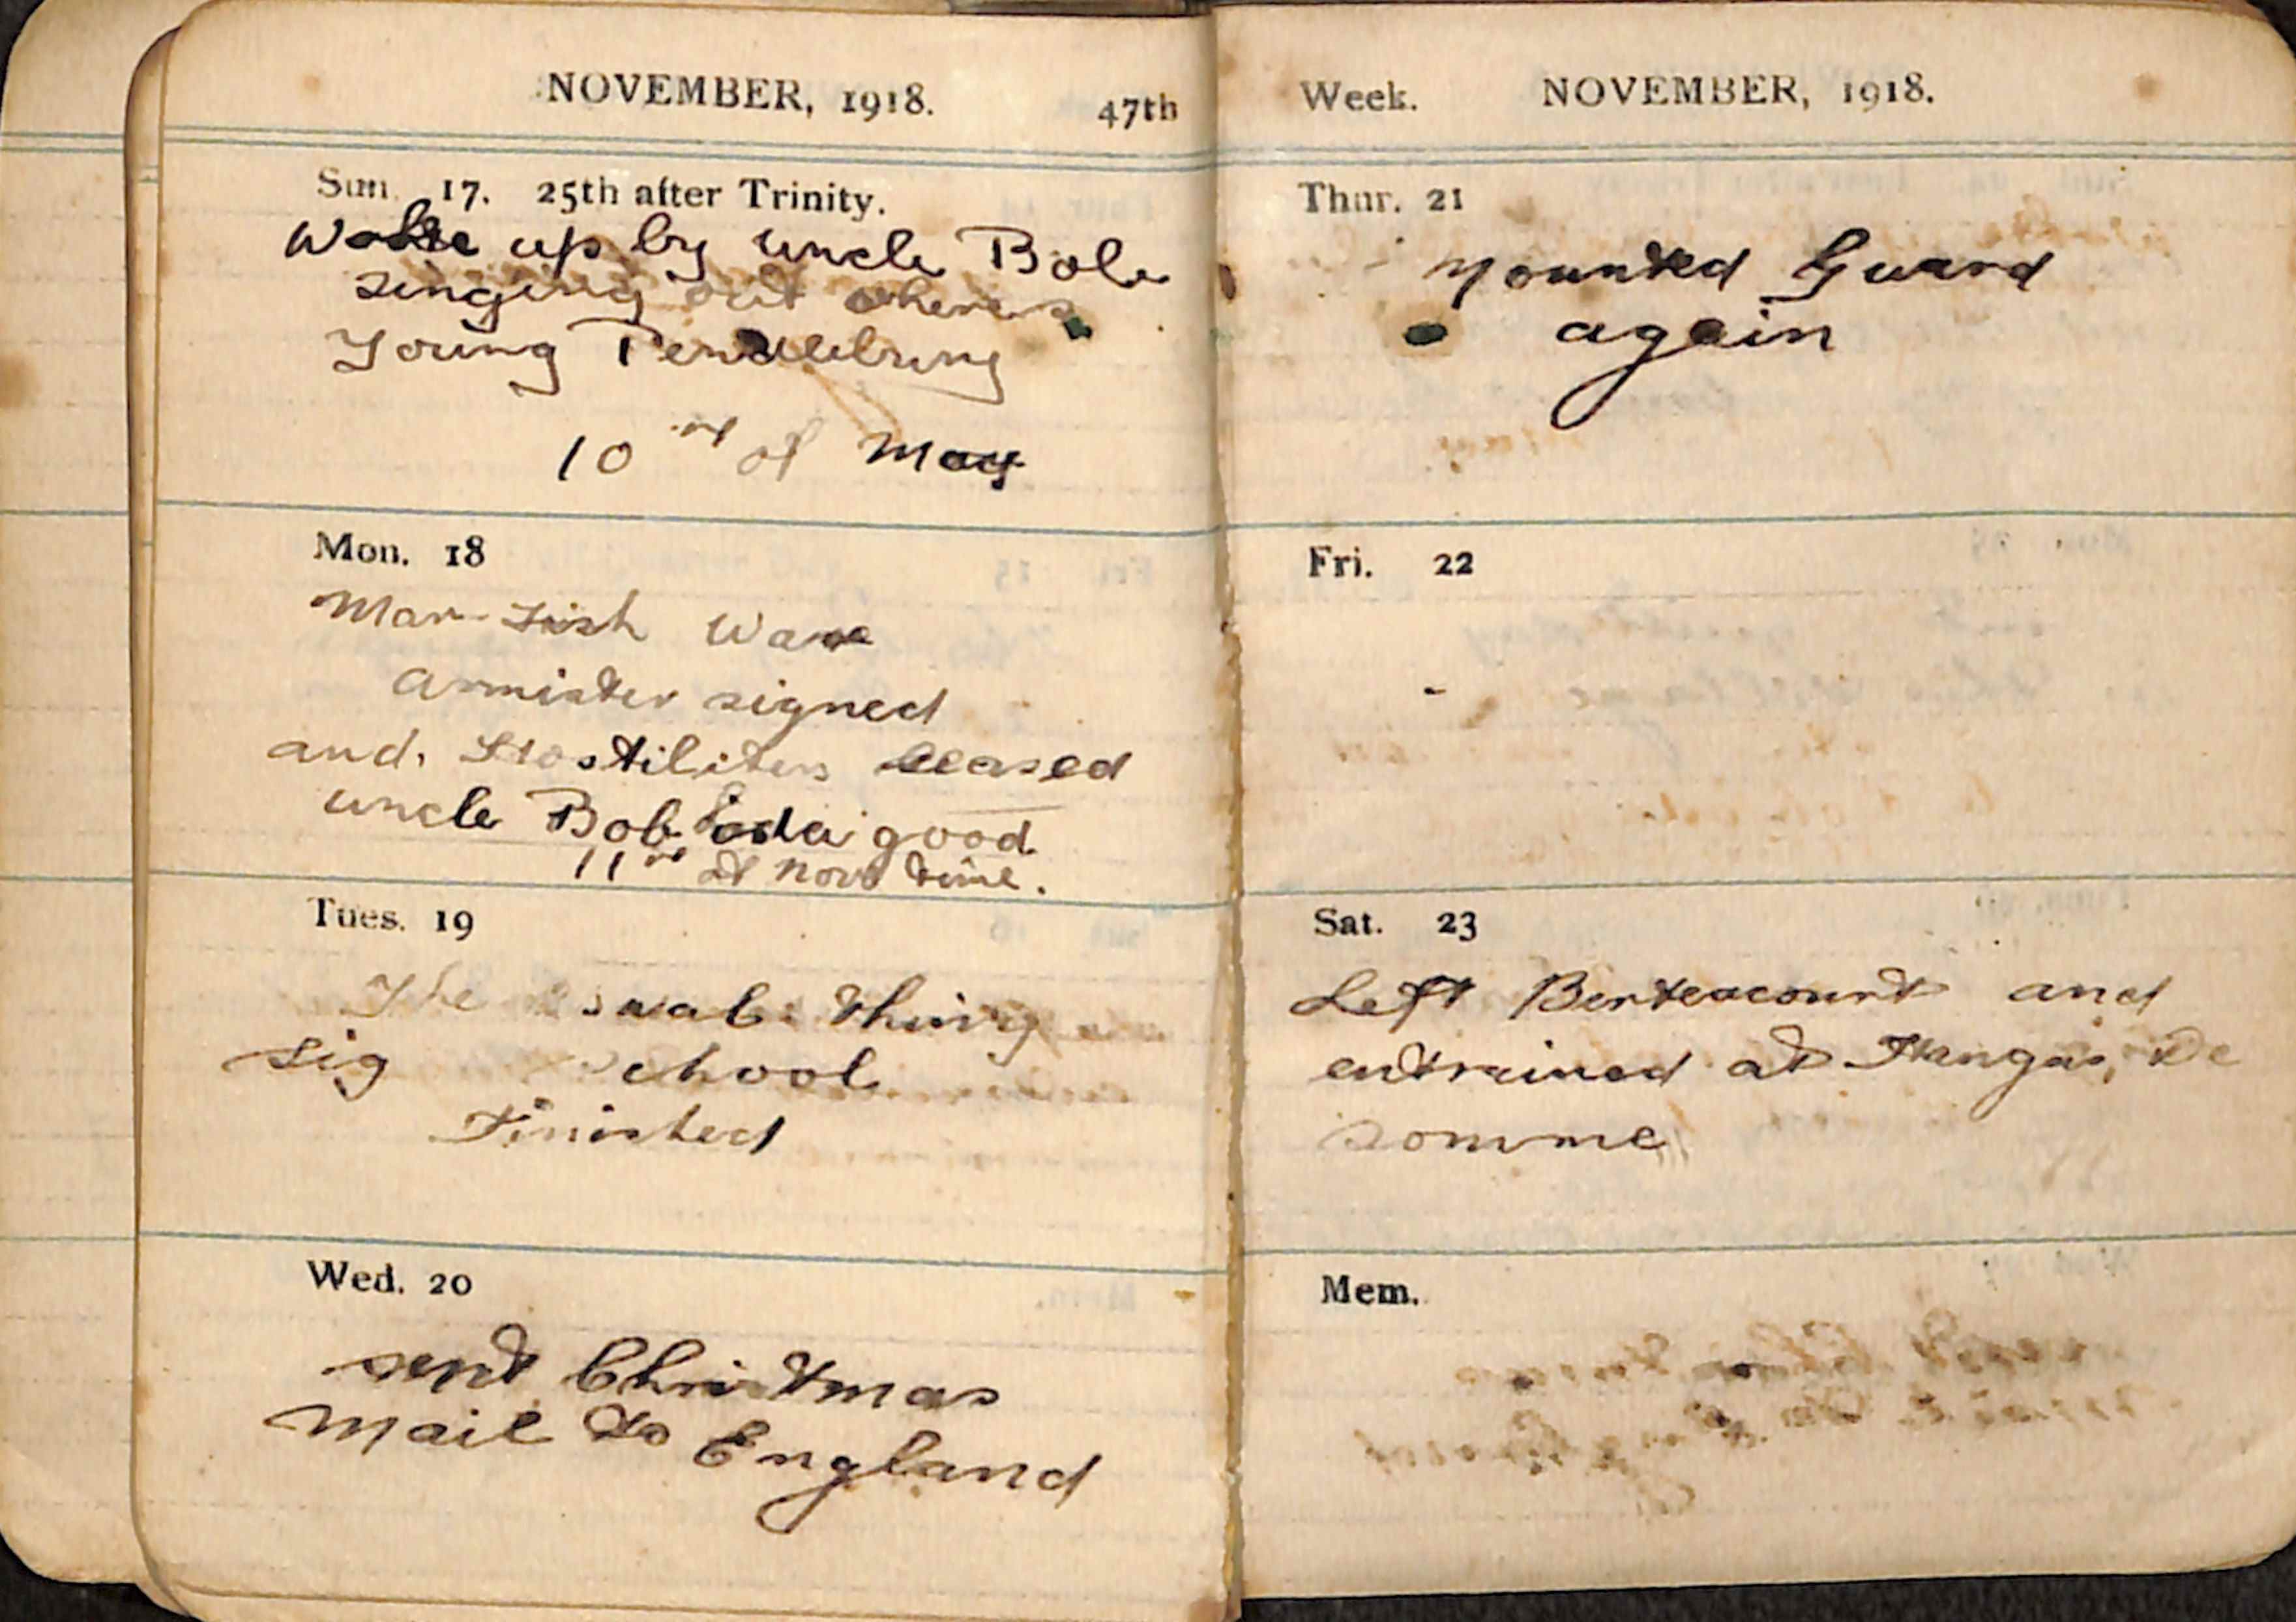 NOVEMBER, 1918. 47th
Sun. 17. 25th after Trinity.
Woke up by uncle Bob
singing out wheres
Young Pendlebury
10 of May
Mon. 18
War
armister signed
and. Hostilities ceased
uncle Bob had a good
11 of Nov time.
Tues. 19
The usual thing
sig School
Finished
Wed. 20
sent Christmas
mail to England
Week. NOVEMBER, 1918.
Thur. 21
Mounted Guard
again
Fri. 22
Sat. 23
Left Berteacourt and
entrained at Hangas, De
somme
Mem.